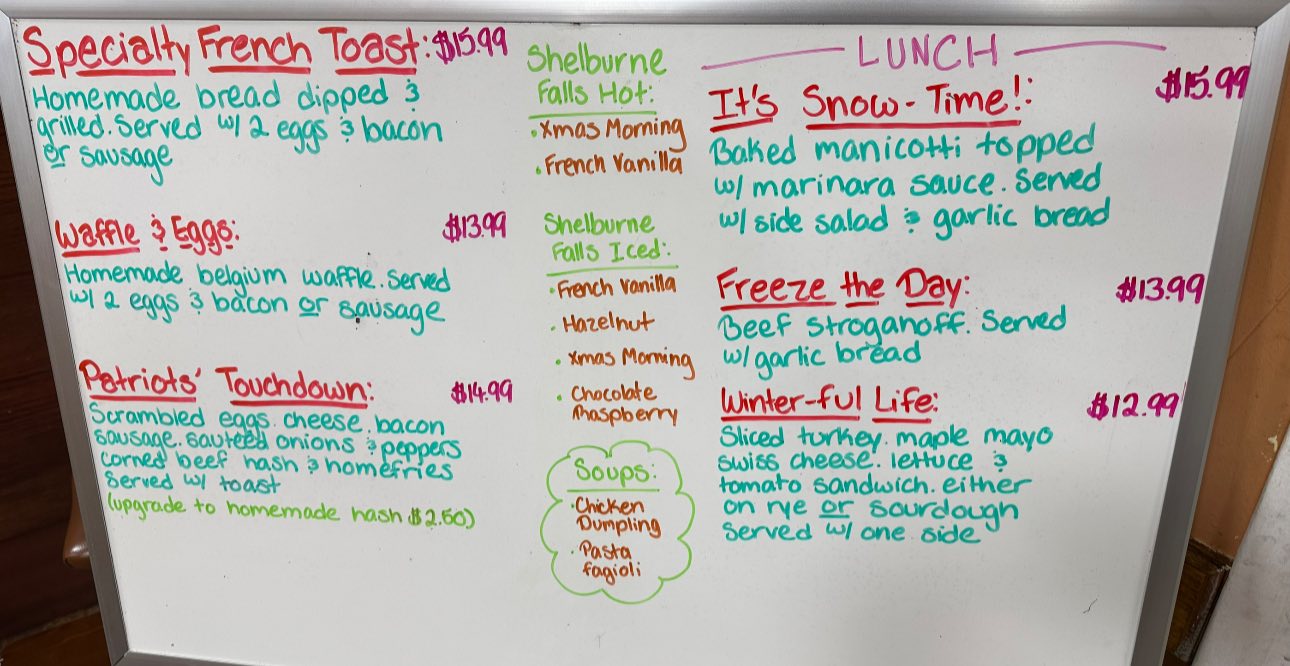 Specialty French Toast: $15.99
Homemade bread dipped &
grilled. Served w/ 2 eggs & bacon
or sausage
Waffle & Eggs: $13.99
Homemade belgium waffle. Served
w/ 2 eggs & bacon or sausage
Patriots' Touchdown: $14.99
Scrambled eggs. cheese. bacon
sausage. sauteed onions & peppers
corned beef hash & homefries
Served w/ toast
(upgrade to homemade hash $2.50)
Shelburne
Falls Hot:
• Xmas Morning
• French Vanilla
Shelburne
Falls Iced:
• French Vanilla
• Hazelnut
• Xmas Morning
• Chocolate
Raspberry
Soups:
• Chicken
Dumpling
• Pasta
fagioli
LUNCH
It's Snow-Time!: $15.99
Baked manicotti topped
w/ marinara sauce. Served
w/ side salad & garlic bread
Freeze the Day: $13.99
Beef stroganoff. Served
w/ garlic bread
Winter-ful Life: $12.99
Sliced turkey. maple mayo
swiss cheese. lettuce &
tomato sandwich. either
on rye or sourdough
Served w/ one side